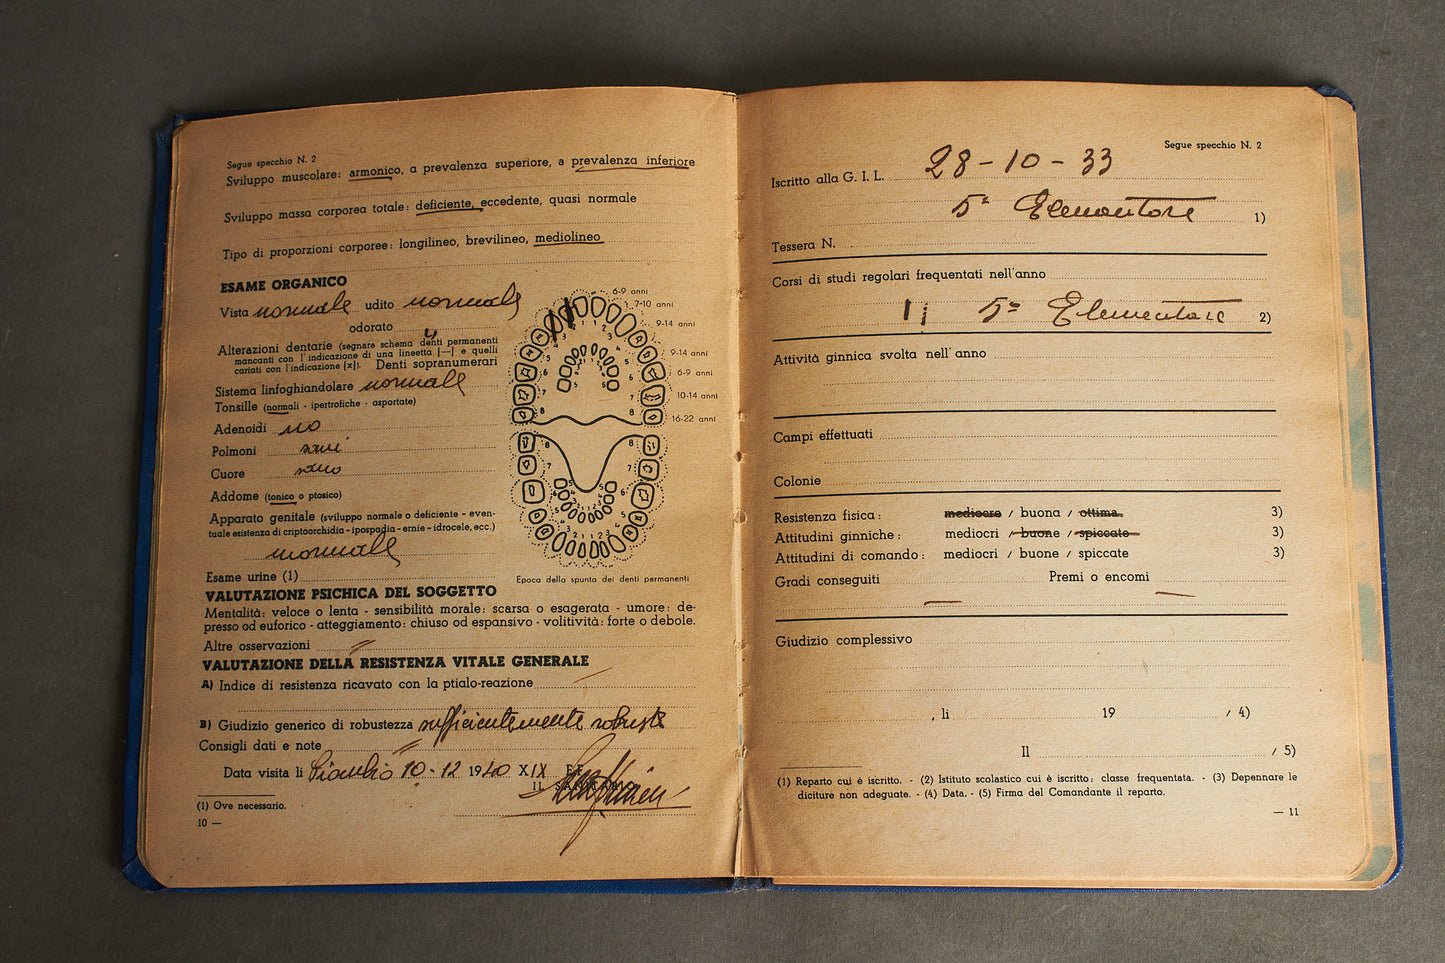 Segue specchio N. 2
Sviluppo muscolare: armonico, a prevalenza superiore, a prevalenza inferiore
Sviluppo massa corporea totale: deficiente, eccedente, quasi normale
Tipo di proporzioni corporee: longilineo, brevilineo, mediolineo
ESAME ORGANICO
Vista normale udito normale
odorato
Alterazioni dentarie (segnare schema denti permanenti
mancanti con l'indicazione di una lineetta [—] e quelli
cariati con l'indicazione [x]). Denti sopranumerari
Sistema linfoghiandolare normale
Tonsille (normali - ipertrofiche - asportate)
Adenoidi no
Polmoni sani
Cuore sano
Addome (tonico o ptosico)
Apparato genitale (sviluppo normale o deficiente - even-
tuale esistenza di criptoorchidia - ipospadia - ernie - idrocele, ecc.)
normale
Esame urine (1)
6-9 anni
7-10 anni
9-14 anni
9-14 anni
6-9 anni
10-14 anni
16-22 anni
Epoca della spunta dei denti permanenti
VALUTAZIONE PSICHICA DEL SOGGETTO
Mentalità: veloce o lenta - sensibilità morale: scarsa o esagerata - umore: de-
presso od euforico - atteggiamento: chiuso od espansivo - volitività: forte o debole.
Altre osservazioni
VALUTAZIONE DELLA RESISTENZA VITALE GENERALE
A) Indice di resistenza ricavato con la ptialo-reazione
B) Giudizio generico di robustezza sufficientemente robusto
Consigli dati e note
Data visita li 10-12 1940 XIX E.F.
IL SANITARIO
(1) Ove necessario.
10 —
Segue specchio N. 2
Iscritto alla G. I. L. 28-10-33
5ª Elementare 1)
Tessera N.
Corsi di studi regolari frequentati nell'anno
5ª Elementare 2)
Attività ginnica svolta nell'anno
Campi effettuati
Colonie
Resistenza fisica: mediocre / buona / ottima 3)
Attitudini ginniche: mediocri / buone / spiccate 3)
Attitudini di comando: mediocri / buone / spiccate 3)
Gradi conseguiti Premi o encomi
Giudizio complessivo
, li 19 / 4)
Il / 5)
(1) Reparto cui è iscritto. - (2) Istituto scolastico cui è iscritto, classe frequentata. - (3) Depennare le
diciture non adeguate. - (4) Data. - (5) Firma del Comandante il reparto.
— 11